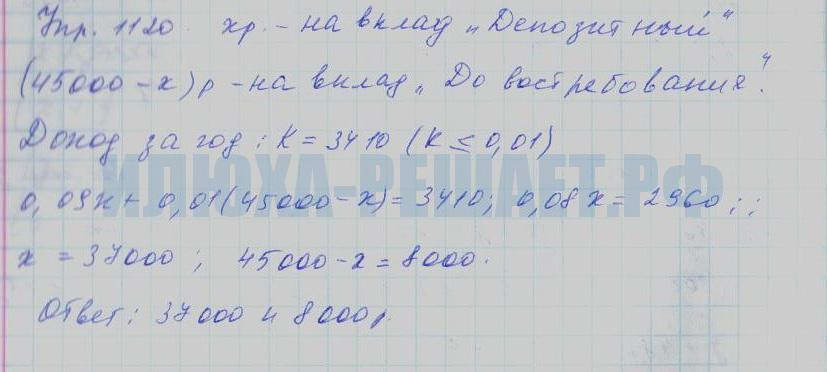 Упр. 1120. х р. – на вклад „Депозитный“
(45000 – х) р – на вклад „До востребования“.
Доход за год: К = 3410 (К ≤ 0,01)
ИЛЮХА-РЕШАЕТ.РФ
0,09х + 0,01(45000 – х) = 3410; 0,08х = 2960; ;
х = 37000 ; 45000 – х = 8000.
Ответ: 37000 и 8000 р.